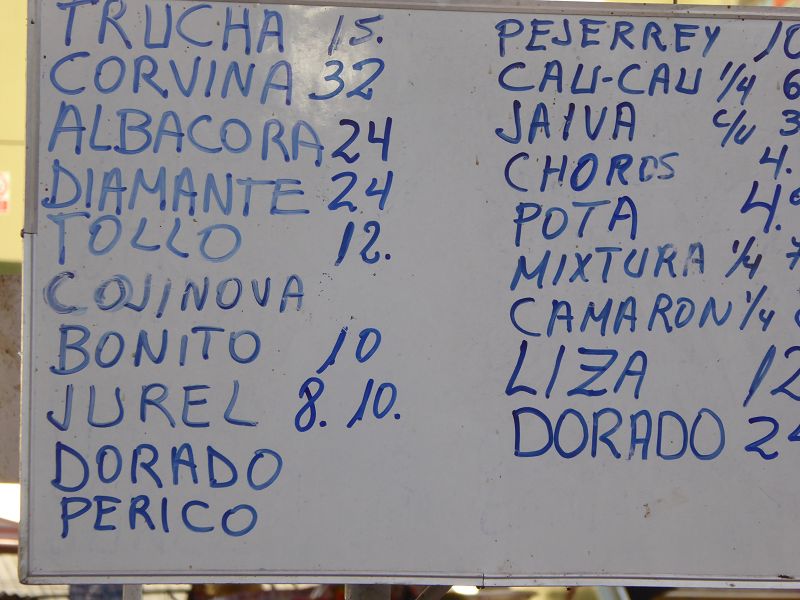 TRUCHA 15.
CORVINA 32
ALBACORA 24
DIAMANTE 24
TOLLO 12.
COJINOVA
BONITO 10
JUREL 8. 10.
DORADO
PERICO
PEJERREY 10
CAU-CAU 1/4 6
JAIVA c/u 3
CHOROS 4.
POTA 4.
MIXTURA 1/4 7
CAMARON 1/4
LIZA 12
DORADO 24